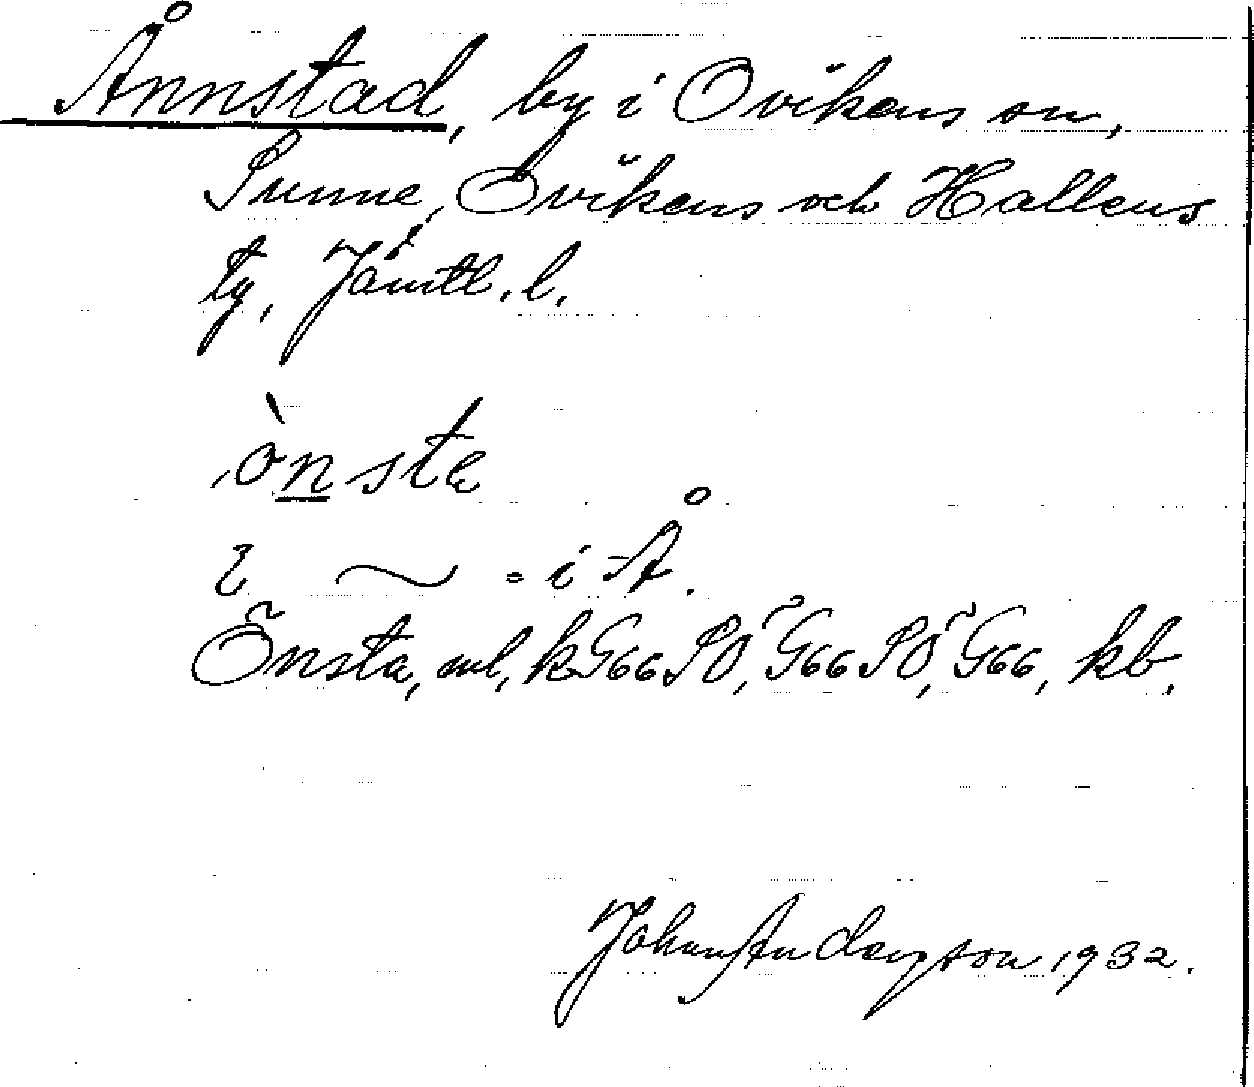 Ånnstad, by i Ovikens sn,
Sunne, Ovikens och Hallens
tg, Jämtl. l.
ònste
~ = i Å.
Önsta, ml, kG66 SÖ, G66 SÖ, G66, kb.
Johan Anderson 1932.